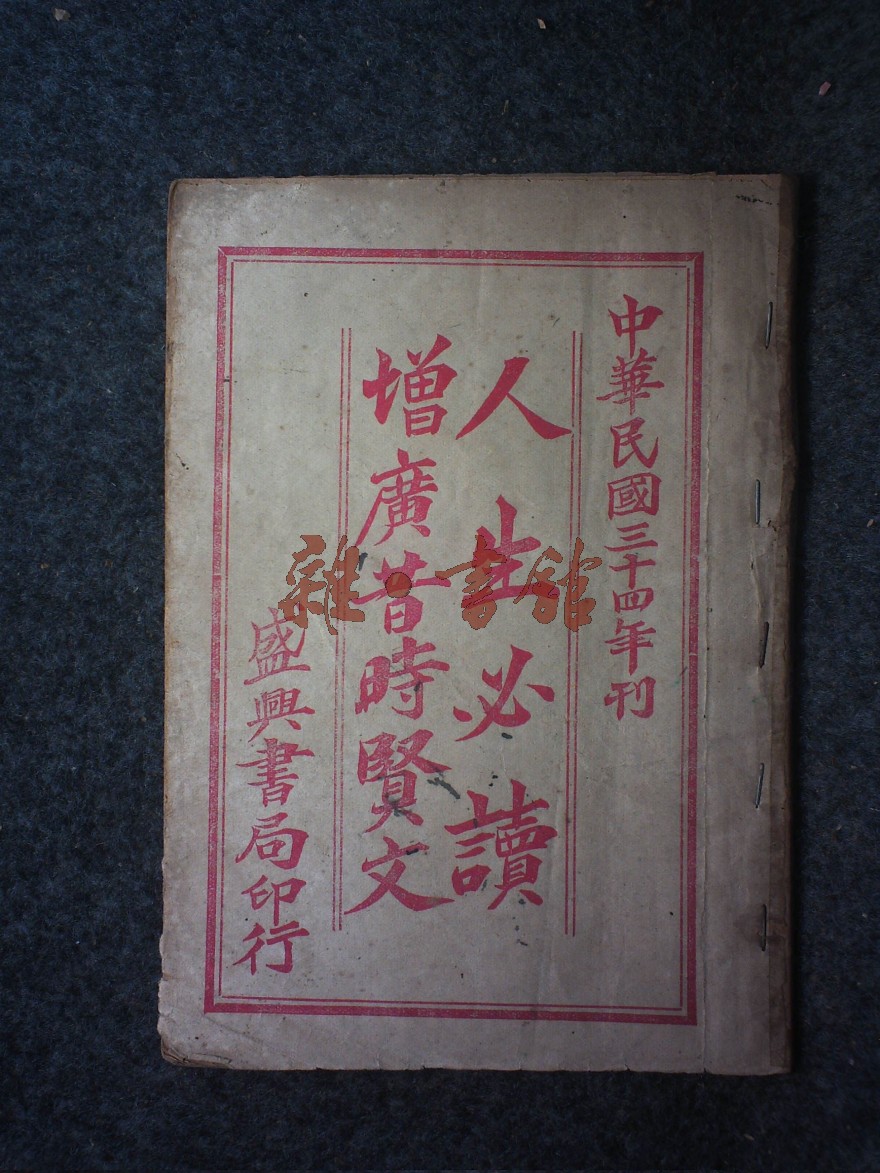 中華民國三十四年刊
人生必讀
增廣昔時賢文
盛興書局印行
雜·書館